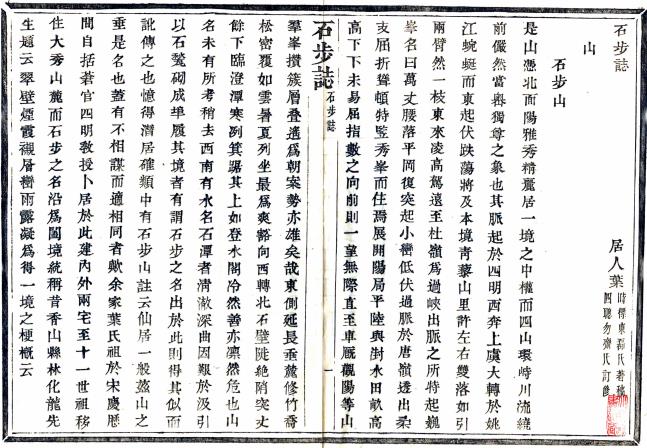 石步誌
山
居人葉
時標東磊氏著稿
四聰勿齋氏訂證
石步山
是山憑北面陽雅秀精麗居一境之中權而四山環峙川流繞
前儼然當輿獨尊之象也其脉起於四明西奔上虞大轉於姚
江蜿蜒而東起伏跌蕩將及本境青藜山里許左右雙落如引
兩臂然一枝東來凌高駕遠至杜嶺爲過峽出脉之所特起巍
峯名曰萬丈腰落平岡復突起小巒低伏過脈於唐嶺透出柔
支屈折聳頓特竪秀峯而住灣展開陽局平陸與封水田畝高
高下下未易屈指數之向前則一望無際直至車厩觀陽等山
石步誌
石步誌
一
羣峯攢簇層叠遙爲朝案勢亦雄矣哉東側延長垂麓修竹喬
松密覆如雲暑夏列坐最爲爽豁向西轉北石壁陡絶陗突丈
餘下臨澄潭寒冽箕踞其上如登水閣冷然善亦凛然危也山
名未有所考稍去西南有水名石潭者清澈深曲因艱於汲引
以石甃砌成阜履其境者有謂石步之名出於此則得其似而
訛傳之也憶得潛居確類中有石步山註云仙居一般蓋山之
垂是名也蓋有不相謀而適相同者歟余家葉氏祖於宋慶歷
間自括蒼官四明教授卜居於此建內外兩宅至十一世祖移
住大秀山麓而石步之名沿爲闔境統稱昔香山縣林化龍先
生題云翠壁煙霞襯層巒雨露凝爲得一境之梗槪云